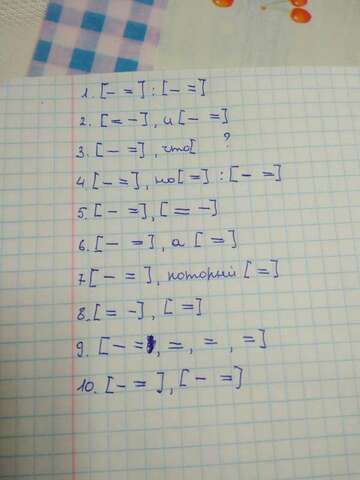 1. [– =] : [– =]
2. [= –], и [– =]
3. [– =], что[ ?
4. [– =], но[=] : [– =]
5. [– =], [= –]
6. [– =], а [=]
7. [– =], который [=]
8. [= –], [=]
9. [– =, =, =, =]
10. [– =], [– =]